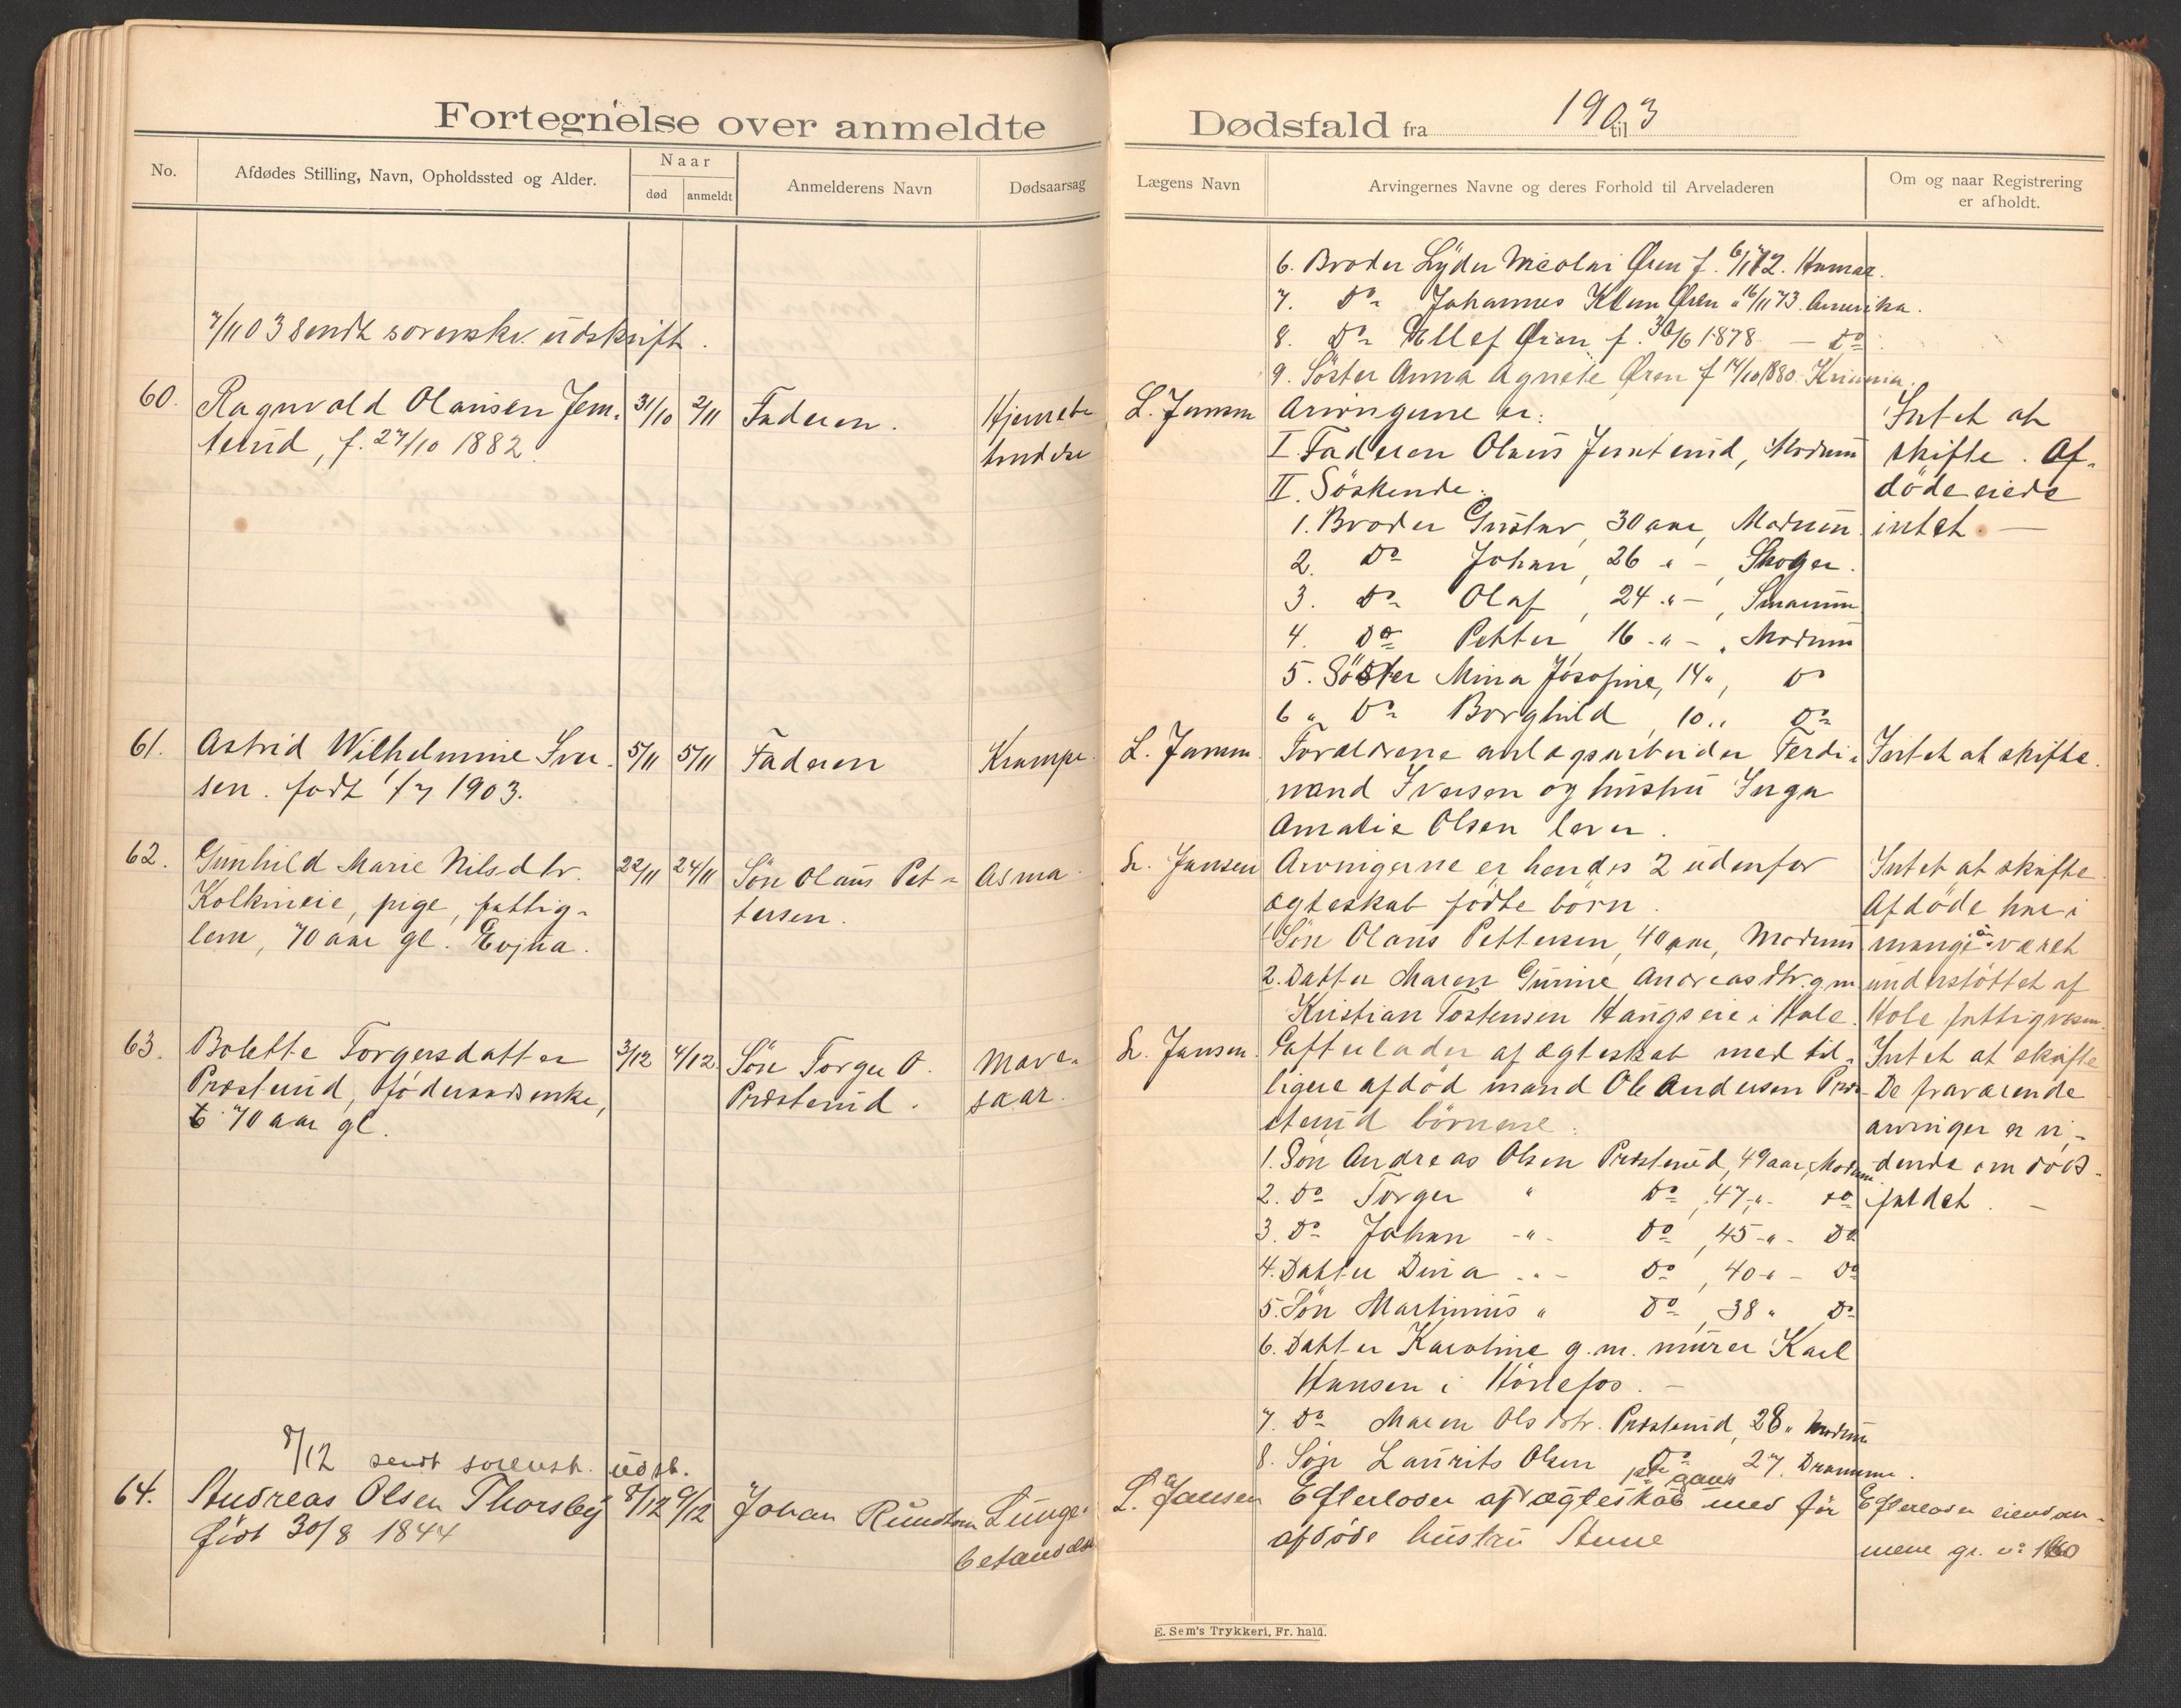 Fortegnelse over anmeldte
No.
Afdødes Stilling, Navn, Opholdssted og Alder.
Naar
død
anmeldt
Anmelderens Navn
Dødsaarsag
7/11 03 sendt sorenskr. udskrift.
60. Ragnvald Olausen Jem- 31/10 2/11 Faderen. Hjernebe
terud, f. 27/10 1882
61. Astrid Wilhelmine Iver- 5/11 5/11 Faderen Krampe.
sen. født 1/7 1903.
62. Gunhild Marie Nilsdtr. 22/11 24/11 Søn Olaus Pet- Asma.
pige, fattig- tersen.
lem, 70 aar gl.
63. Bolette Torgersdatter 3/12 4/12 Søn Torger O. Mave-
Præsterud, føderaadsenke, Præsterud. saar.
70 aar gl.
8/12 sendt sorensk. udsk.
64. Andreas Olsen Thorsby 8/12 9/12 Johan Lunge-
født 30/8 1844 betændelse
Dødsfald fra 1903 til
Lægens Navn
Arvingernes Navne og deres Forhold til Arveladeren
Om og naar Registrering
er afholdt.
6. Broder Lyder Nicolai Øren f. Hamar.
7. Do Johannes Øren " 16/11 73. Amerika.
8. Do Ellef Øren f. 30/6 1878 - Do
9. Søster Anna Agnete Øren f 14/10 1880 Kristiania.
L. Jansen Arvingerne er: Intet at
I. Faderen Olaus Jemterud, Modum skifte. Af-
II. Søskende: døde eiede
1. Broder Gustav, 30 aar, Modum. intet. -
2. Do Johan, 26 " -, Skoger.
3. Do Olaf, 24 " -, Simoum
4. Do Petter, 16 - " -, Modum
5. Søster Mina Josefine, 14 ", Do
6 " Do Borghild, 10 " Do
L. Jansen. Forældrene anlægsarbeider Ferdi- Intet at skifte.
nand Iversen og hustru Inga
Amalie Olsen lever.
L. Jansen Arvingerne er hendes 2 udenfor Intet at skifte
ægteskab fødte børn. Afdøde har i
1 Søn Olaus Pettersen, 40 aar, Modum mange år været
2. Datter Maren Gurine Andreasdtr. g.m. understøttet af
Kristian Tostensen Haugseie i Hole. Hole fattigvæsen.
L. Jansen. Efterlader af ægteskab med tid- Intet at skifte
ligere afdød mand Ole Andersen Præ- De fraværende
sterud børnene: arvinger er vi-
1. Søn Andreas Olsen Præsterud, 49 aar, Modum dende om døds-
2. Do Torger " Do, 47 - " - Do faldet. -
3. Do Johan - " - Do, 45 - " - Do
4. Datter Dina - " - Do, 40 - " - Do
5. Søn Martinius " Do, 38 " Do
6. Datter Karoline g.m. murer Karl
Hansen i Hønefos. -
7. Do Maren Olsdtr. Præsterud, 28 " Modum
8. Søn Laurits Olsen Do 27. Drammen.
L. Jansen Efterlader af ægteskab med før Efterlader eiendom-
afdøde hustru mene gr. no
E. Sem's Trykkeri, Fr. hald.